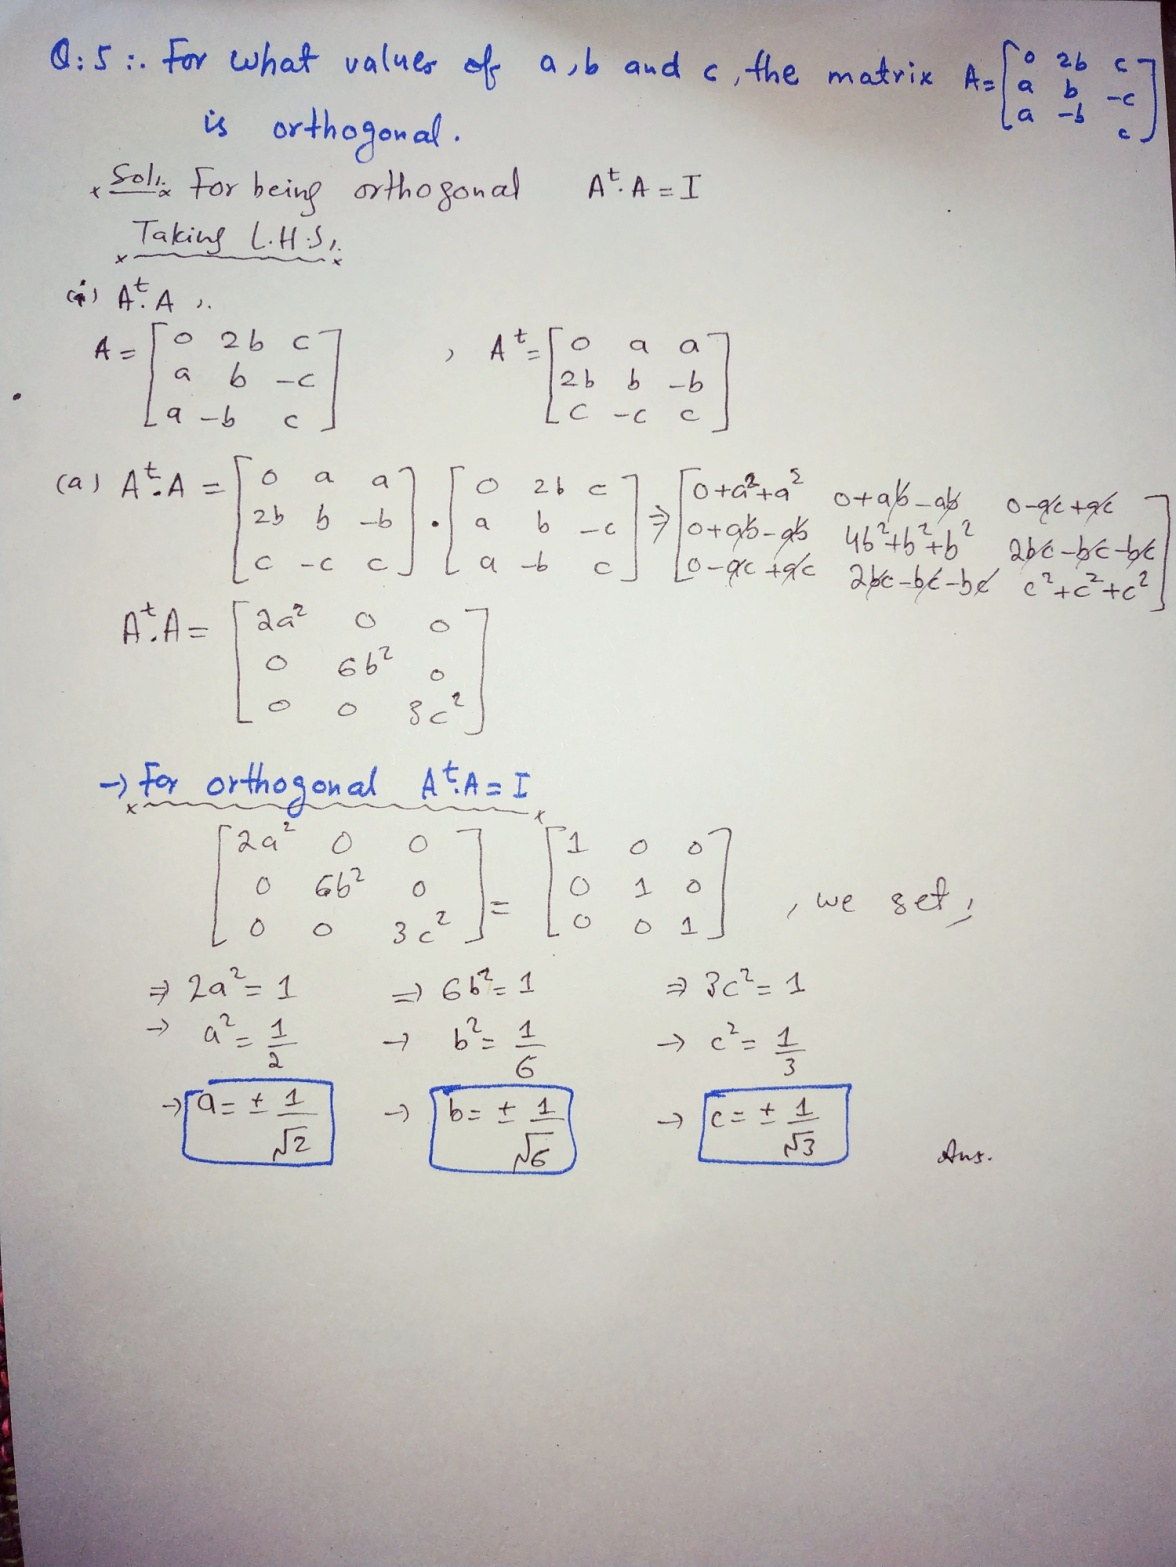 Q:5:. For what values of a,b and c, the matrix A=[0 2b c
a b -c
a -b c]
is orthogonal.
Sol:. For being orthogonal Aᵗ.A = I
Taking L.H.S,.
(i) Aᵗ.A ,.
A = [0 2b c , Aᵗ= [0 a a
a b -c 2b b -b
a -b c] c -c c]
(a) Aᵗ.A = [0 a a] . [0 2b c] ⇒ [0+a²+a² 0+ab-ab 0-ac+ac
2b b -b a b -c 0+ab-ab 4b²+b²+b² 2bc-bc-bc
c -c c a -b c 0-ac+ac 2bc-bc-bc c²+c²+c²]
Aᵗ.A = [2a² 0 0
0 6b² 0
0 0 3c²]
→ For orthogonal Aᵗ.A = I
[2a² 0 0 [1 0 0
0 6b² 0 = 0 1 0 , we set,
0 0 3c²] 0 0 1]
⇒ 2a² = 1 ⇒ 6b² = 1 ⇒ 3c² = 1
→ a² = 1/2 → b² = 1/6 → c² = 1/3
→ a = ± 1/√2 → b = ± 1/√6 → c = ± 1/√3 Ans.